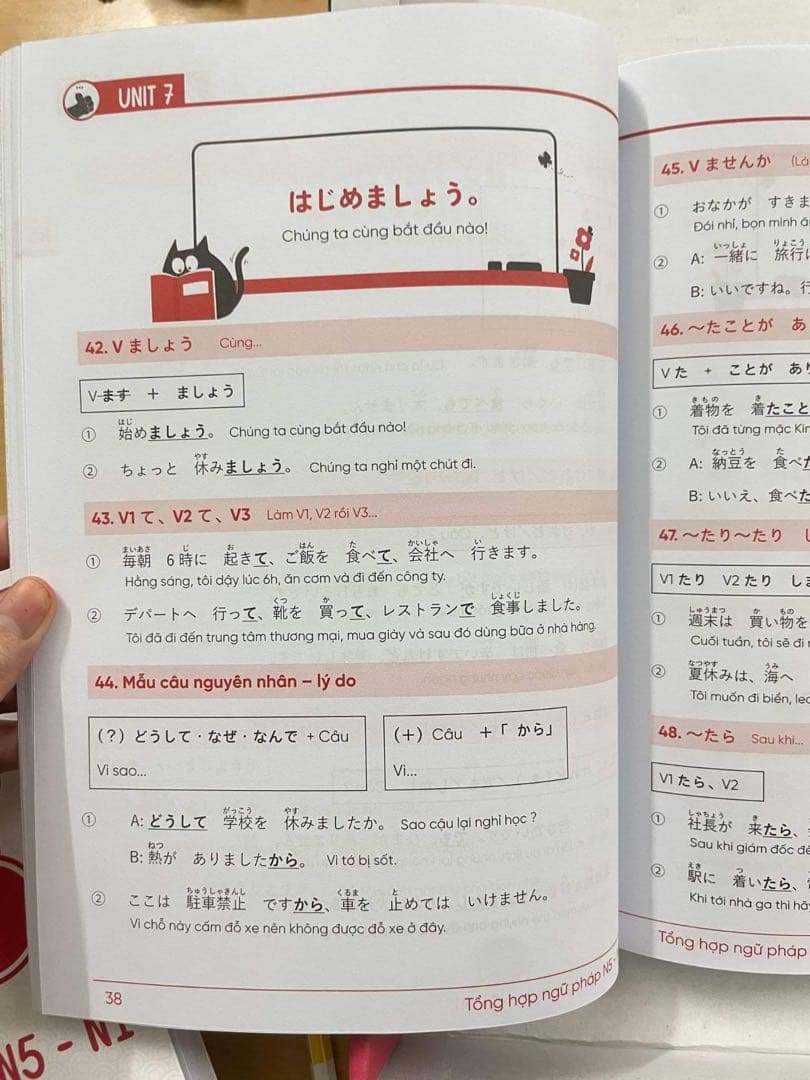 UNIT 7
はじめましょう。
Chúng ta cùng bắt đầu nào!
42. V ましょう Cùng...
V ます + ましょう
① 始めましょう。 Chúng ta cùng bắt đầu nào!
はじ
② ちょっと 休みましょう。 Chúng ta nghỉ một chút đi.
やす
43. V1 て、V2 て、V3 Làm V1, V2 rồi V3...
まいあさ じ お はん た かいしゃ い
① 毎朝 6時に 起きて、ご飯を 食べて、会社へ 行きます。
Hằng sáng, tôi dậy lúc 6h, ăn cơm và đi đến công ty.
くつ か しょくじ
② デパートへ 行って、靴を 買って、レストランで 食事しました。
Tôi đã đi đến trung tâm thương mại, mua giày và sau đó dùng bữa ở nhà hàng.
44. Mẫu câu nguyên nhân – lý do
(?) どうして・なぜ・なんで + Câu
Vì sao...
(+) Câu +「 から」
Vì...
がっこう やす
① A: どうして 学校を 休みましたか。 Sao cậu lại nghỉ học ?
ねつ
B: 熱が ありましたから。 Vì tớ bị sốt.
ちゅうしゃきんし くるま と
② ここは 駐車禁止 ですから、車を 止めては いけません。
Vì chỗ này cấm đỗ xe nên không được đỗ xe ở đây.
38
Tổng hợp ngữ pháp N5 -
45. V ませんか (Là
① おなかが すきま
Đói nhỉ, bọn mình ă
いっしょ りょこう
② A: 一緒に 旅行に
B: いいですね。行
46. ～たことが あ
V た + ことが あり
きもの き
① 着物を 着たこと
Tôi đã từng mặc Kim
なっとう た
② A: 納豆を 食べた
B: いいえ、食べた
47. ～たり～たり
V1 たり V2 たり しま
しゅうまつ か もの
① 週末は 買い物を
Cuối tuần, tôi sẽ đi
なつやす うみ
② 夏休みは、海へ
Tôi muốn đi biển, leo
48. ～たら Sau khi...
V1 たら、V2
しゃちょう き
① 社長が 来たら、
Sau khi giám đốc đế
えき つ
② 駅に 着いたら、
Khi tới nhà ga thì hãy
Tổng hợp ngữ pháp
N5 - N1